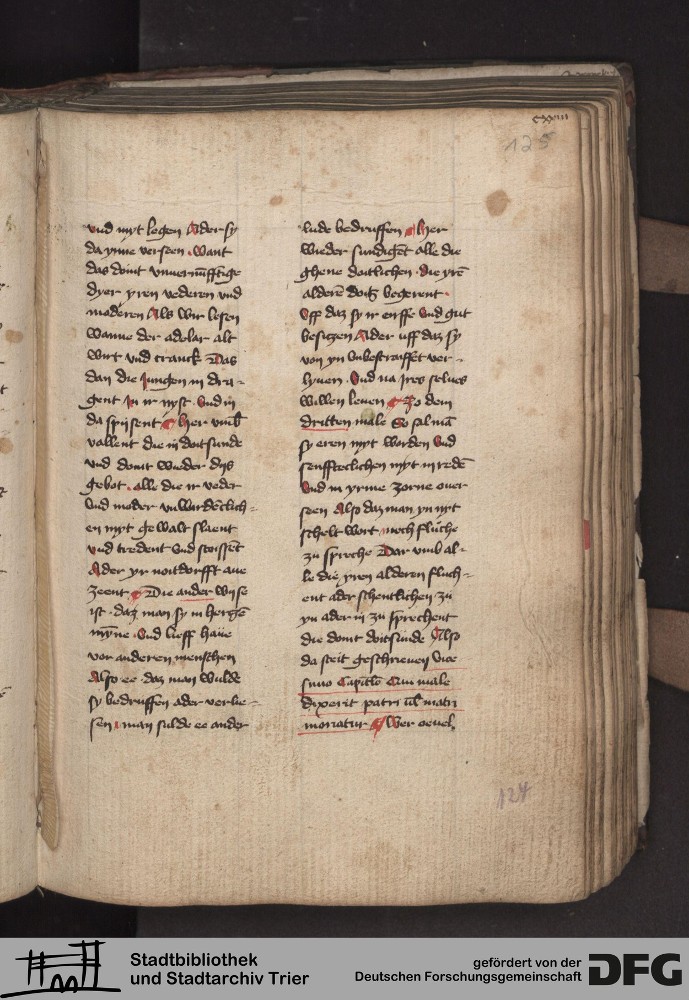 cxxiiii
125
vnd myt legen Ader sy
da ynne verseen . want
das doint vnuernűfftige
dyer yren vederen vnd
moderen Als wir lesen
wanne der adelar alt
wirt vnd cranck Das
dan die Jungen in dra-
gent in ir nyst . vnd in
da spijsent Her vmb
vallent die in doitsunde
vnd doint wieder dijs
gebot . alle die ir veder
vnd moder
en myt gewalt slaent
vnd tredent vnd stoissēt
Ader yr noitdorfft aue
zeent Die ander wyse
ist . daz man sy in hergē
mÿne . vnd lieff haue
vor anderen menschen
Also ee daz man wulde
sy bedruffen ader verlie-
sen man sulde ee ander
lude bedruffen Her
wieder sundigēt alle die
ghene doitlichen . die yrē
alderē doitz begerent .
Vff daz sy ir erffe vnd gut
besitzen Ader uff daz sy
von yn vnbestraiffet ver-
lyuen . Vnd na ires selues
willen leuen Zo dem
dritten male So sal mā
sy eren myt worden vnd
senffteclichen myt in redē
Vnd in yrme zorne ouer
seen Also daz man yn nyt
schelt wort noch flůche
zu spreche Dar vmb al-
le die yren alderen fluch-
ent ader schentlichen zu
yn ader in zu sprechent
die doint doitsunde Also
da steit geschreuen vice
simo Capitło Qui male
dixerit patri uł matri
moriatur Wer oeuel
124
Stadtbibliothek
und Stadtarchiv Trier
gefördert von der
Deutschen Forschungsgemeinschaft
DFG